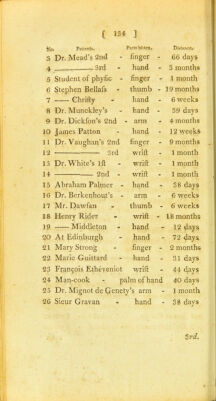 [ 154 ]
No. Patients. Parts bitten. Distance.
3 Dr. Mead's 2nd - finger - 66 days
4 —— 3rd - hand - 5 months
5 Student of physic - finger - 1 month
6 Stephen Bellass - thumb - 19 months
7 —— Christy - hand - 6 weeks
8 Dr. Munckley's - hand - 39 days
9 Dr. Dickson's 2nd - arm - 4 months
10 James Patton - hand - 12 weeks
11 Dr. Vaughan's 2nd finger - 9 months
12 —— 3rd wrist - 1 month
13 Dr. White's 1st - wrist - 1 month
14 —— 2nd - wrist - 1 month
15 Abraham Palmer - hand - 38 days
16 Dr. Berkenhout's - arm - 6 weeks
17 Mr. Dawson - thumb - 6 weeks
18 Henry Rider - wrist - 18 months
19 —— Middleton - hand - 12 days
20 At Edinburgh - hand - 72 days
21 Mary Strong - finger - 2 months
22 Marie Guittard - hand - 31 days
23 François Ethéveniot wrist - 44 days
24 Man-cook - palm of hand 40 days
25 Dr. Mignot de Genety's arm - 1 month
26 Sieur Gravan - hand - 38 days
3rd.